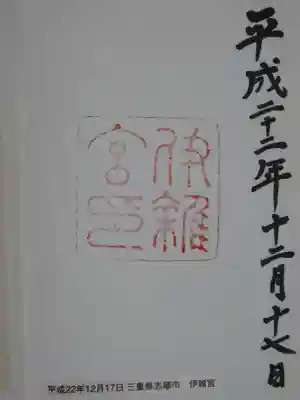 平成二十二年十二月十七日
伊雑
宮印
平成22年12月17日 三重県志摩市 伊雑宮